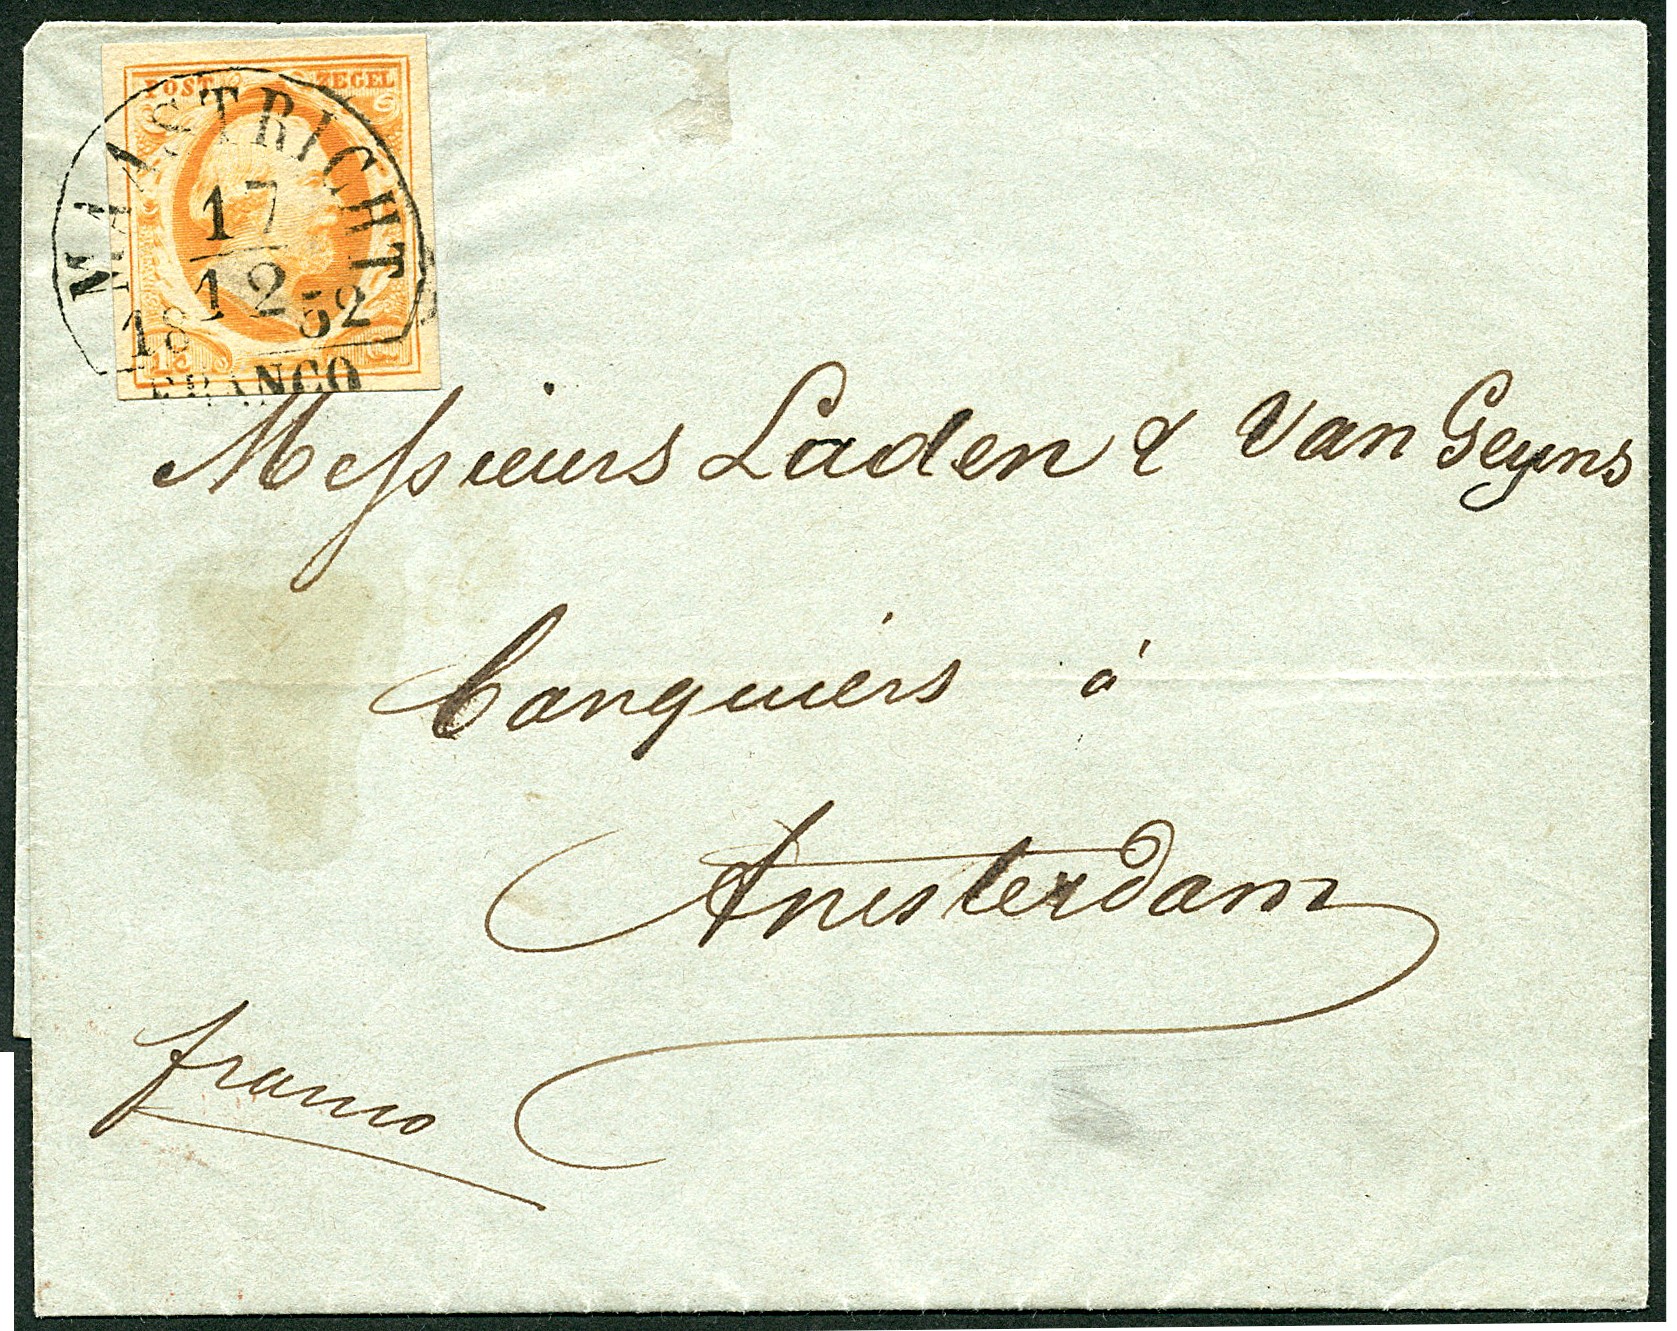 POST ZEGEL
MAASTRICHT
17
12
18 52
15 C
FRANCO
Messieurs Laden & Van Geyns
banquiers à
Amsterdam
franco